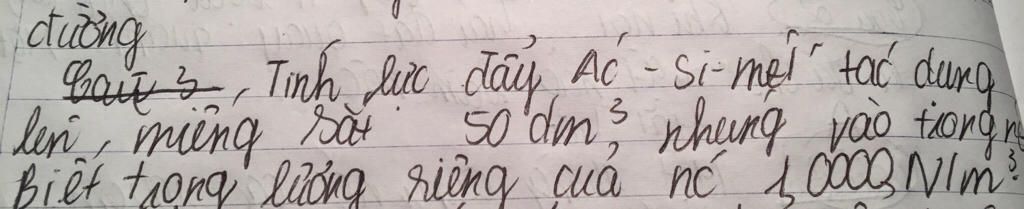 đường
Bài 3, Tính lực đẩy Ác-si-mét tác dụng
lên, miếng sắt 50 dm³, nhúng vào trong
Biết trọng lượng riêng của nó 10000 N/m³.